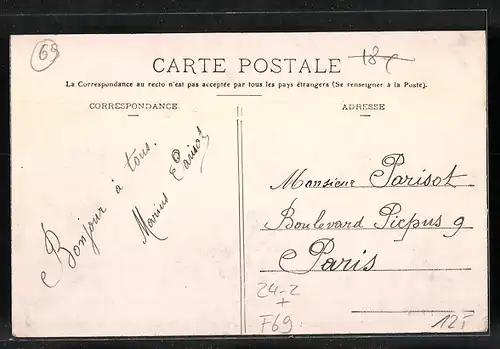 69
CARTE POSTALE
La Correspondance au recto n'est pas acceptée par tous les pays étrangers (Se renseigner à la Poste).
CORRESPONDANCE
ADRESSE
Bonjour à tous.
Marius Parisot
Monsieur Parisot
Boulevard Picpus 9
Paris
24-2
+
F69
12F